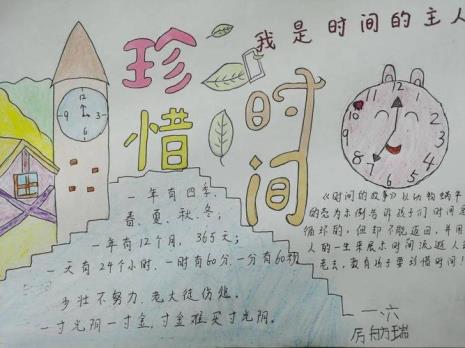 我是时间的主人
珍惜
时间
12
3
6
9
11 12 1
10 2
9 3
8 4
7 6 5
一年有四季,
春、夏、秋、冬;
一年有12个月, 365天;
一天有24个小时,一时有60分,一分有60秒
少壮不努力,老大徒伤悲。
一寸光阴一寸金,寸金难买寸光阴。
《时间的故事》以动物蜗牛
的壳为示例告诉孩子们时间是
循环的,但却不能返回,并用
人的一生来展示时间流逝人
老去,教育孩子要珍惜时间!
一、六